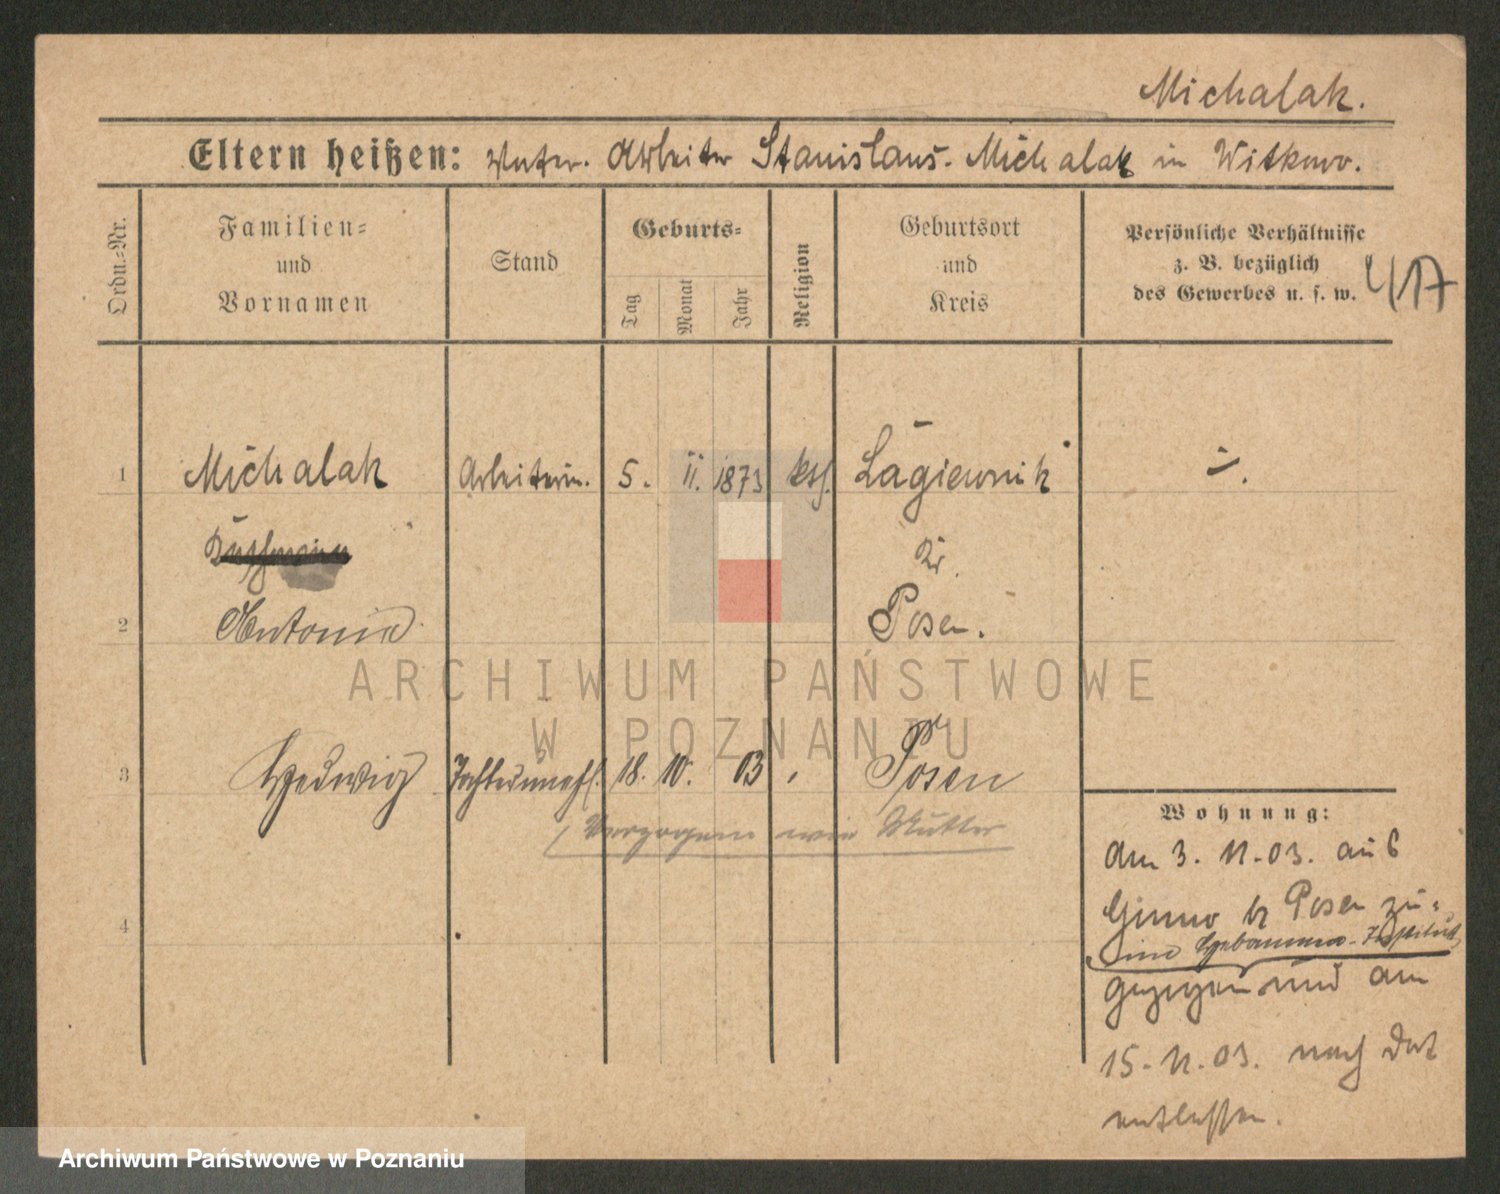 Michalak.
Eltern heißen: Vater. Arbeiter Stanislaus. Michalak in Witkowo.
Ordn.=Nr.
Familien=
und
Vornamen
Stand
Geburts=
Tag
Monat
Jahr
Religion
Geburtsort
und
Kreis
Persönliche Verhältnisse
z. B. bezüglich
des Gewerbes u. s. w.
4/17
1 Michalak Arbeiterin. 5. 11. 1873 kth. Lagiewnik
Kr.
2 Antonie Posen.
3 Hedwig 18. 10. 03 Posen
Verzogen wie Mutter
4
Wohnung:
Am 3. 11. 03. aus
b/ Posen zu=
im Hebammen-Institut
gezogen und am
15. 11. 03. nach dort
entlassen.
ARCHIWUM PAŃSTWOWE
W POZNANIU
Archiwum Państwowe w Poznaniu